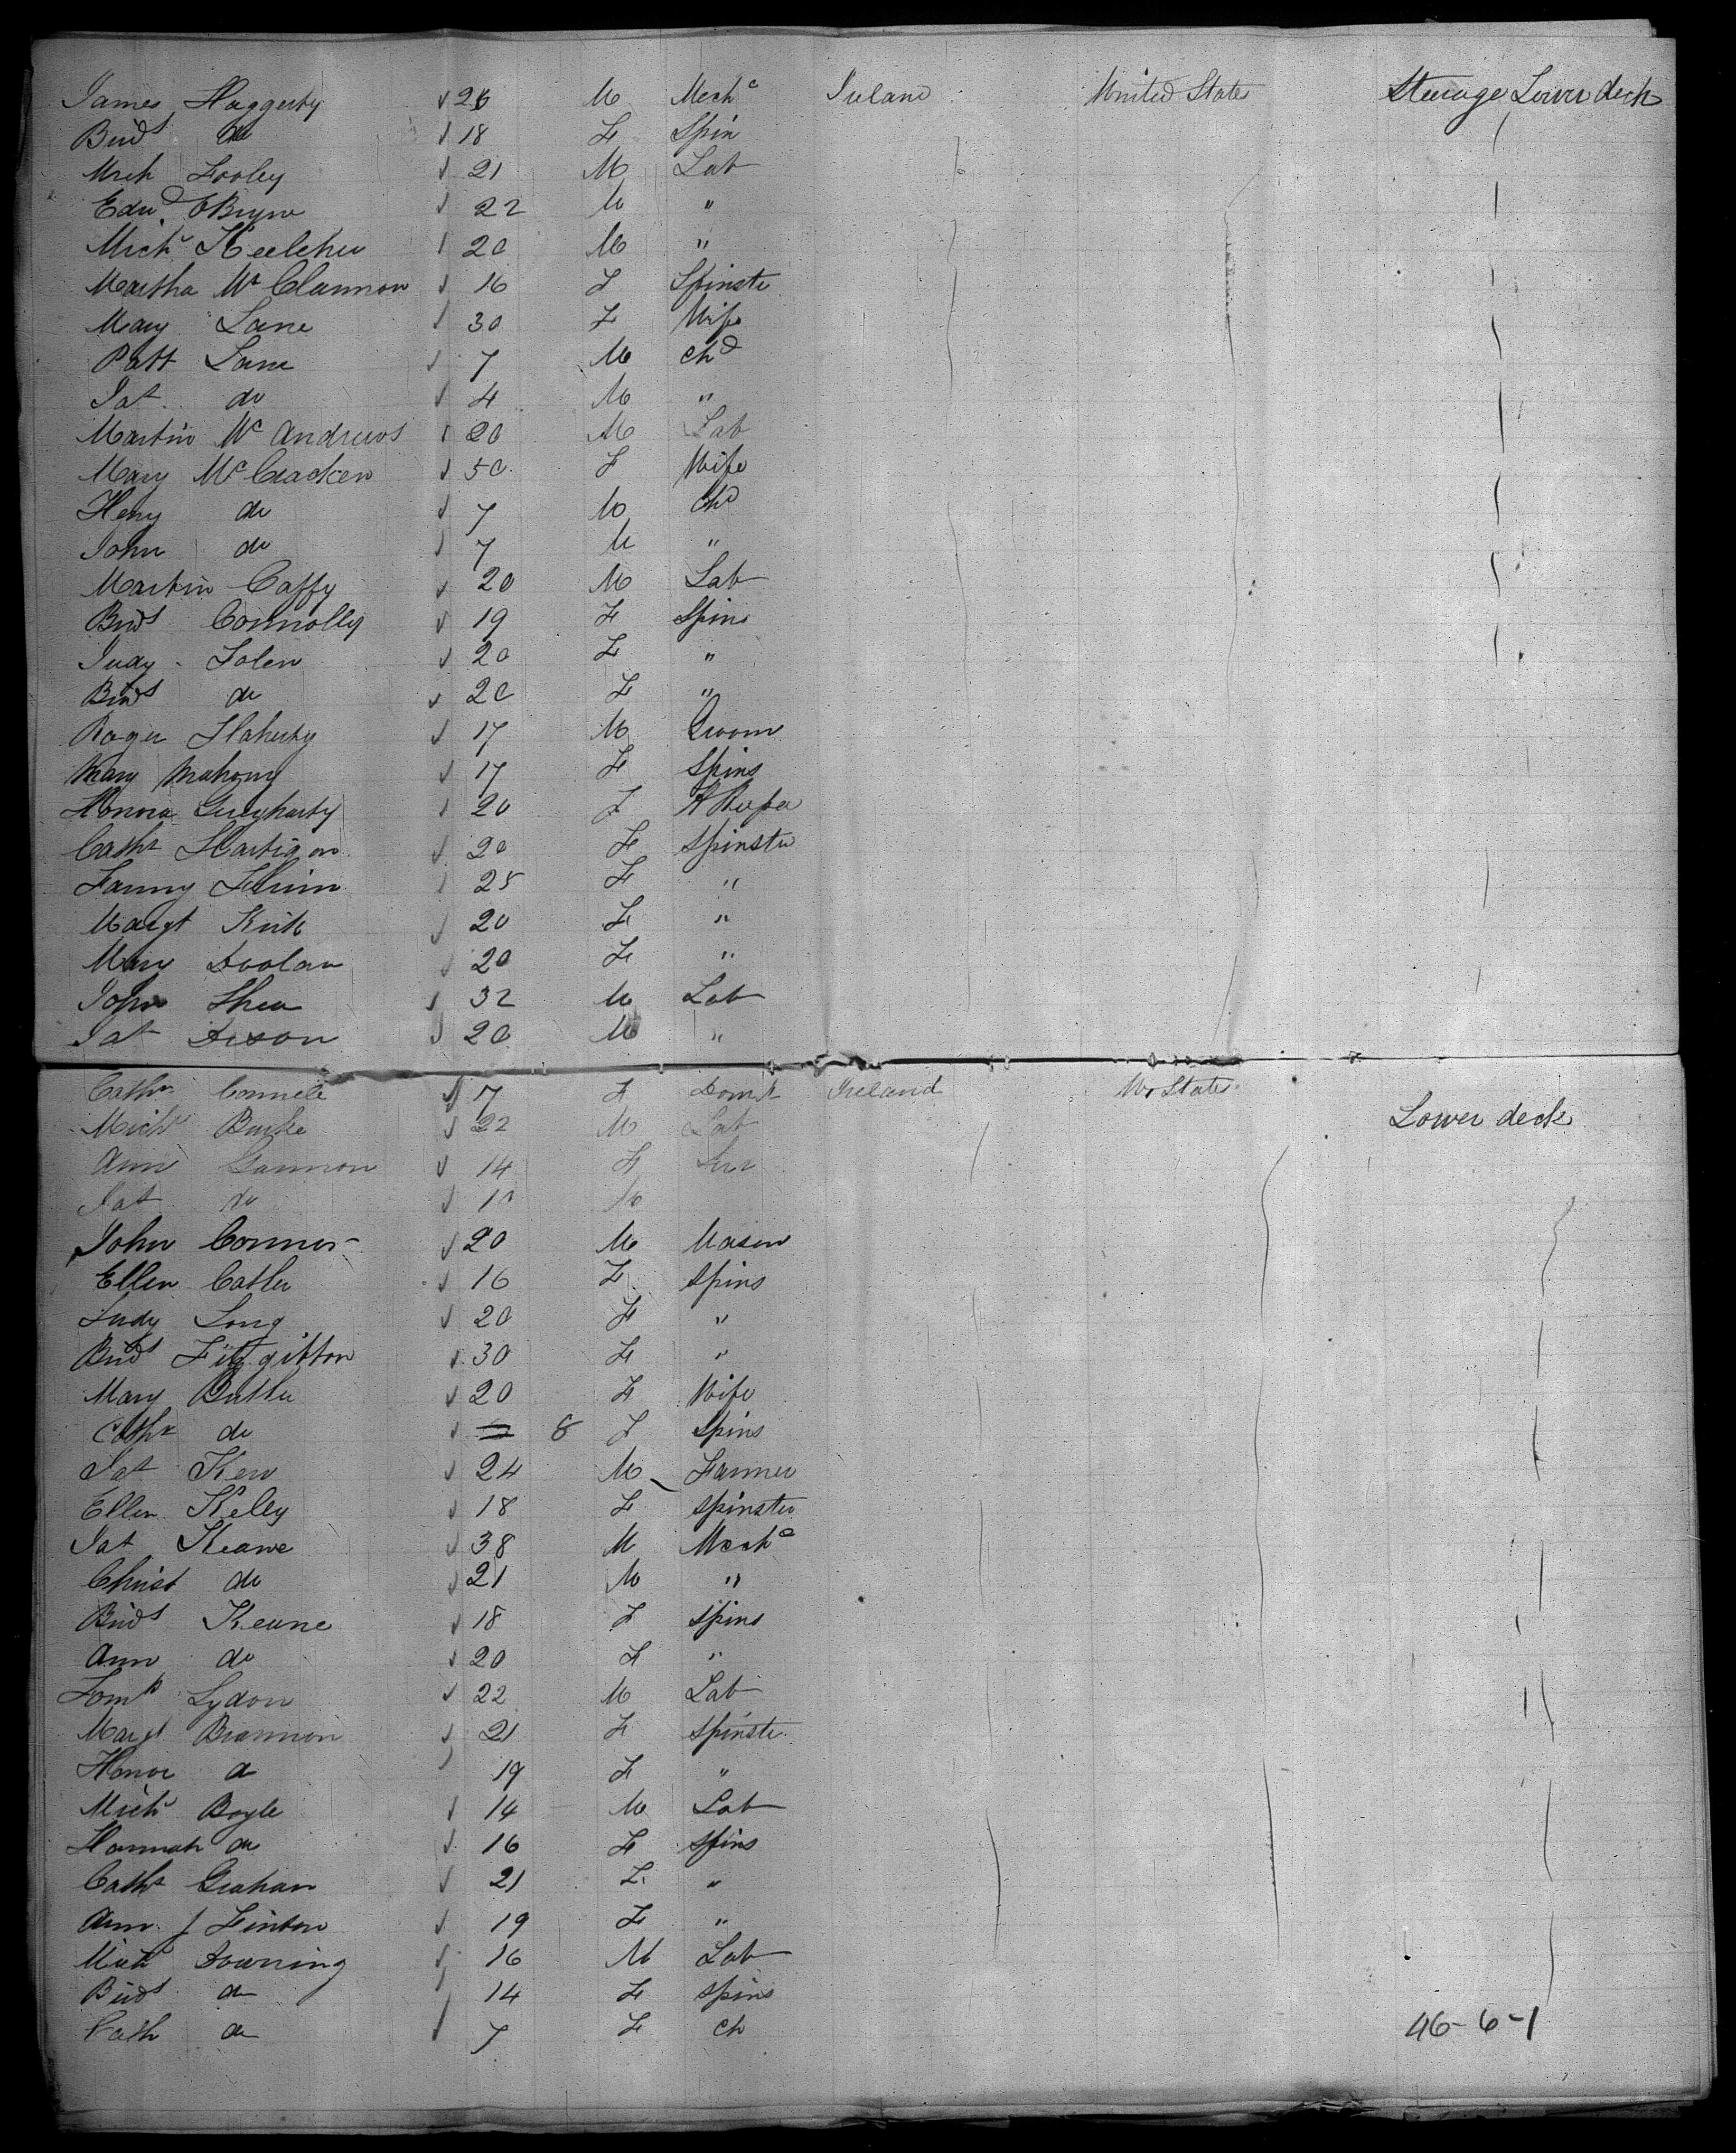 James Haggerty 26 M Mechc Ireland United States Steerage Lower deck
Bridt do 18 F Spin
Mich Fooley 21 M Lab
Edwd OBryne 22 M "
Michl Keelcher 20 M "
Martha Mc Clannon 16 F Spinste
Mary Lane 30 F Wife
Patt Lane 7 M chd
Pat do 4 M "
Martin Mc Andrews 20 M Lab
Mary Mc Cracken 50 F Wife
Heny do 7 M chd
John do 7 M "
Martin Caffy 20 M Lab
Bridt Connolly 19 F Spins
Judy Folen 20 F "
Bridt do 20 F "
Roger Flaherty 17 M Groom
Mary Mahony 17 F Spins
Honora 20 F H Keeper
Cathe Hartigan 20 F Spinster
Fanny 25 F "
Margt Kirk 20 F "
Mary Doolan 20 F "
John Shea 32 M Lab
Pat Dixon 20 M "
Cathn Connele 7 F Domst Ireland U. States
Michl Burke 22 M Lab Lower deck
Ann Gannon 14 F Serv
Pat do 11 M
John Connor 20 M Mason
Ellen Catler 16 F Spins
Judy Long 20 F "
Bridt Fitzgibbon 30 F "
Mary Butler 20 F Wife
Cathe do 8 F Spins
Pat Kew 24 M Farmer
Ellen Keley 18 F Spinster
Pat Keane 38 M Mechc
Christ do 21 M "
Bridt Keane 18 F Spins
Ann do 20 F "
Lydon 22 M Lab
Margt Brannon 21 F Spinste
Honor do 19 F "
Michl Boyle 14 M Lab
Hannah do 16 F Spins
Cathe Grahan 21 F "
Ann J Finton 19 F "
Mich Downing 16 M Lab
Bridt do 14 F Spins
Cath do 7 F ch
46-6-1